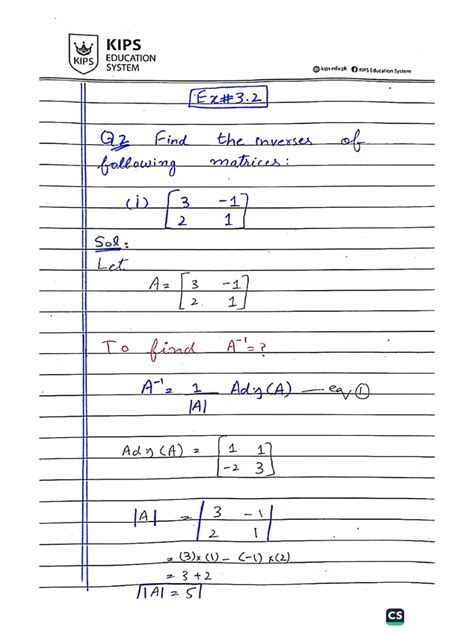 KIPS
EDUCATION
SYSTEM
KIPS
kips.edu.pk KIPS Education System
Ex#3.2
Q2 Find the inverses of
following matrices:
(i) [3 -1
2 1]
Sol:
Let
A= [3 -1
2 1]
To find A⁻¹=?
A⁻¹= 1/|A| Adj(A) — eq ①
Adj(A) = [1 1
-2 3]
|A| = |3 -1
2 1|
= (3)×(1) - (-1)×(2)
= 3+2
|A| = 5
CS